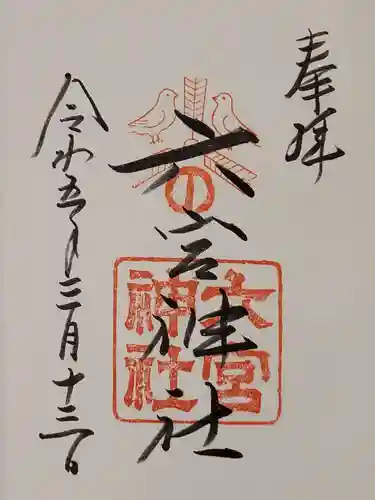 奉拝
六宮神社
の
六宮
神社
令和五年三月十三日